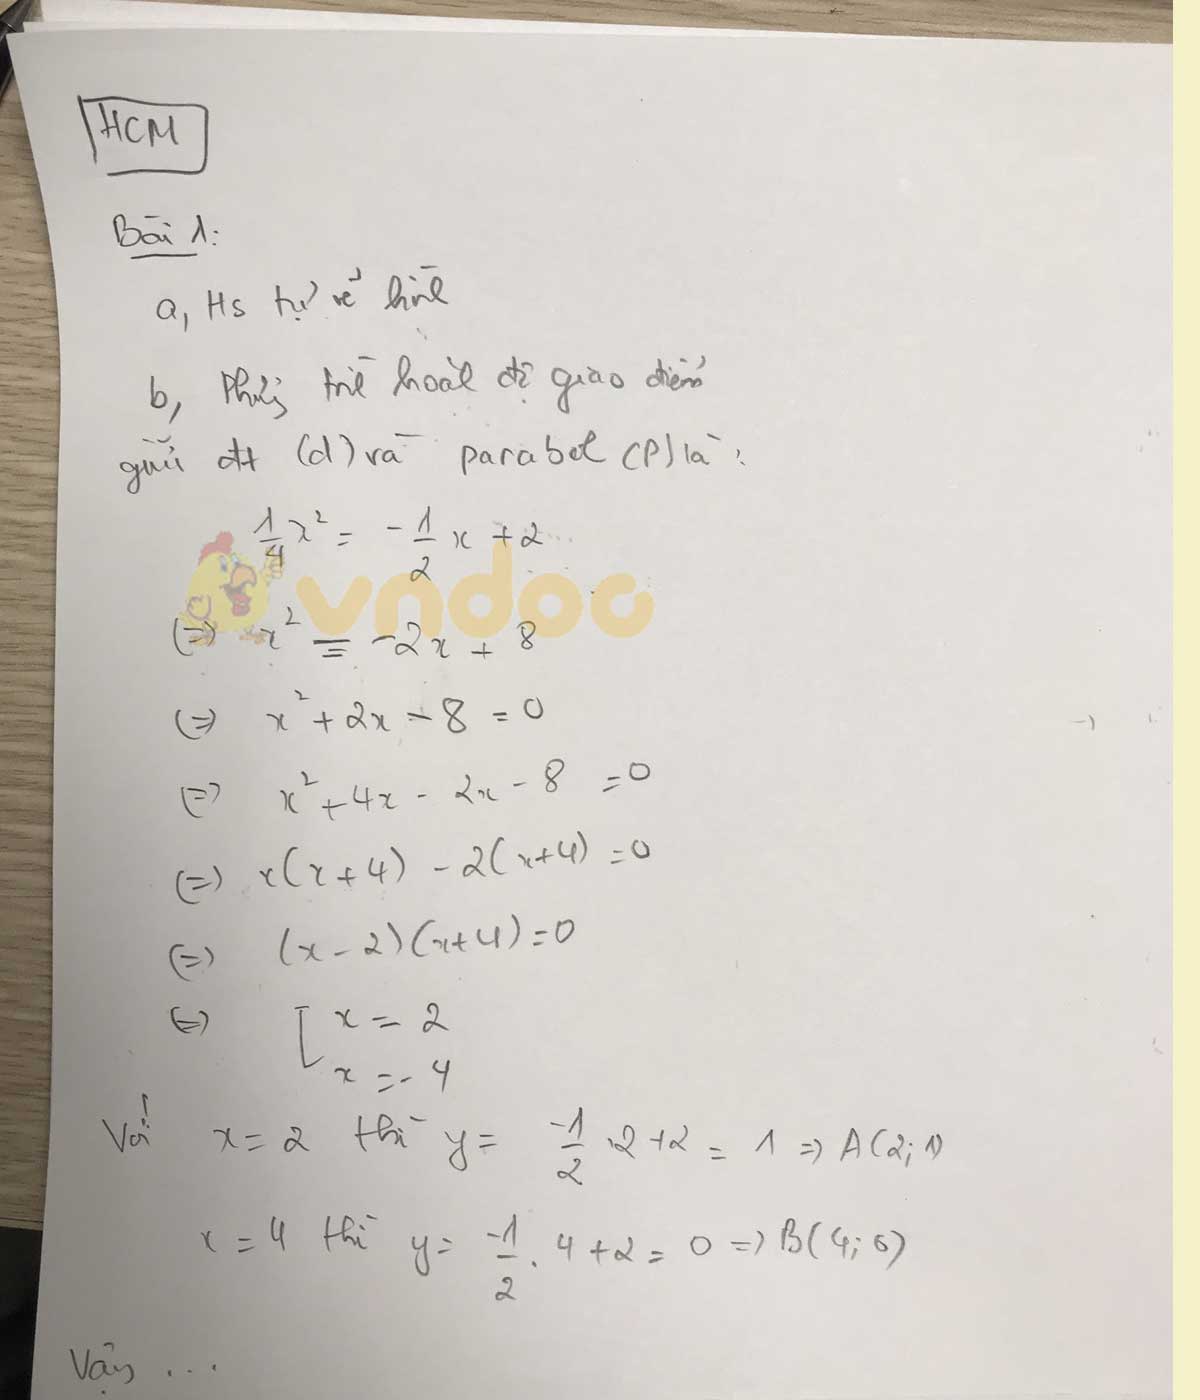 HCM
Bài 1:
a, Hs tự vẽ hình
b, Phương trình hoành độ giao điểm
giữa đt (d) và parabol (P) là :
1/4 x² = -1/2 x + 2
vndoc
(=) x² = -2x + 8
(=) x² + 2x - 8 = 0
(=) x² + 4x - 2x - 8 = 0
(=) x(x+4) - 2(x+4) = 0
(=) (x-2)(x+4) = 0
(=) [ x = 2
x = -4
Với x = 2 thì y = -1/2 .2 + 2 = 1 => A(2;1)
x = 4 thì y = -1/2 . 4 + 2 = 0 => B(4;0)
Vậy ...